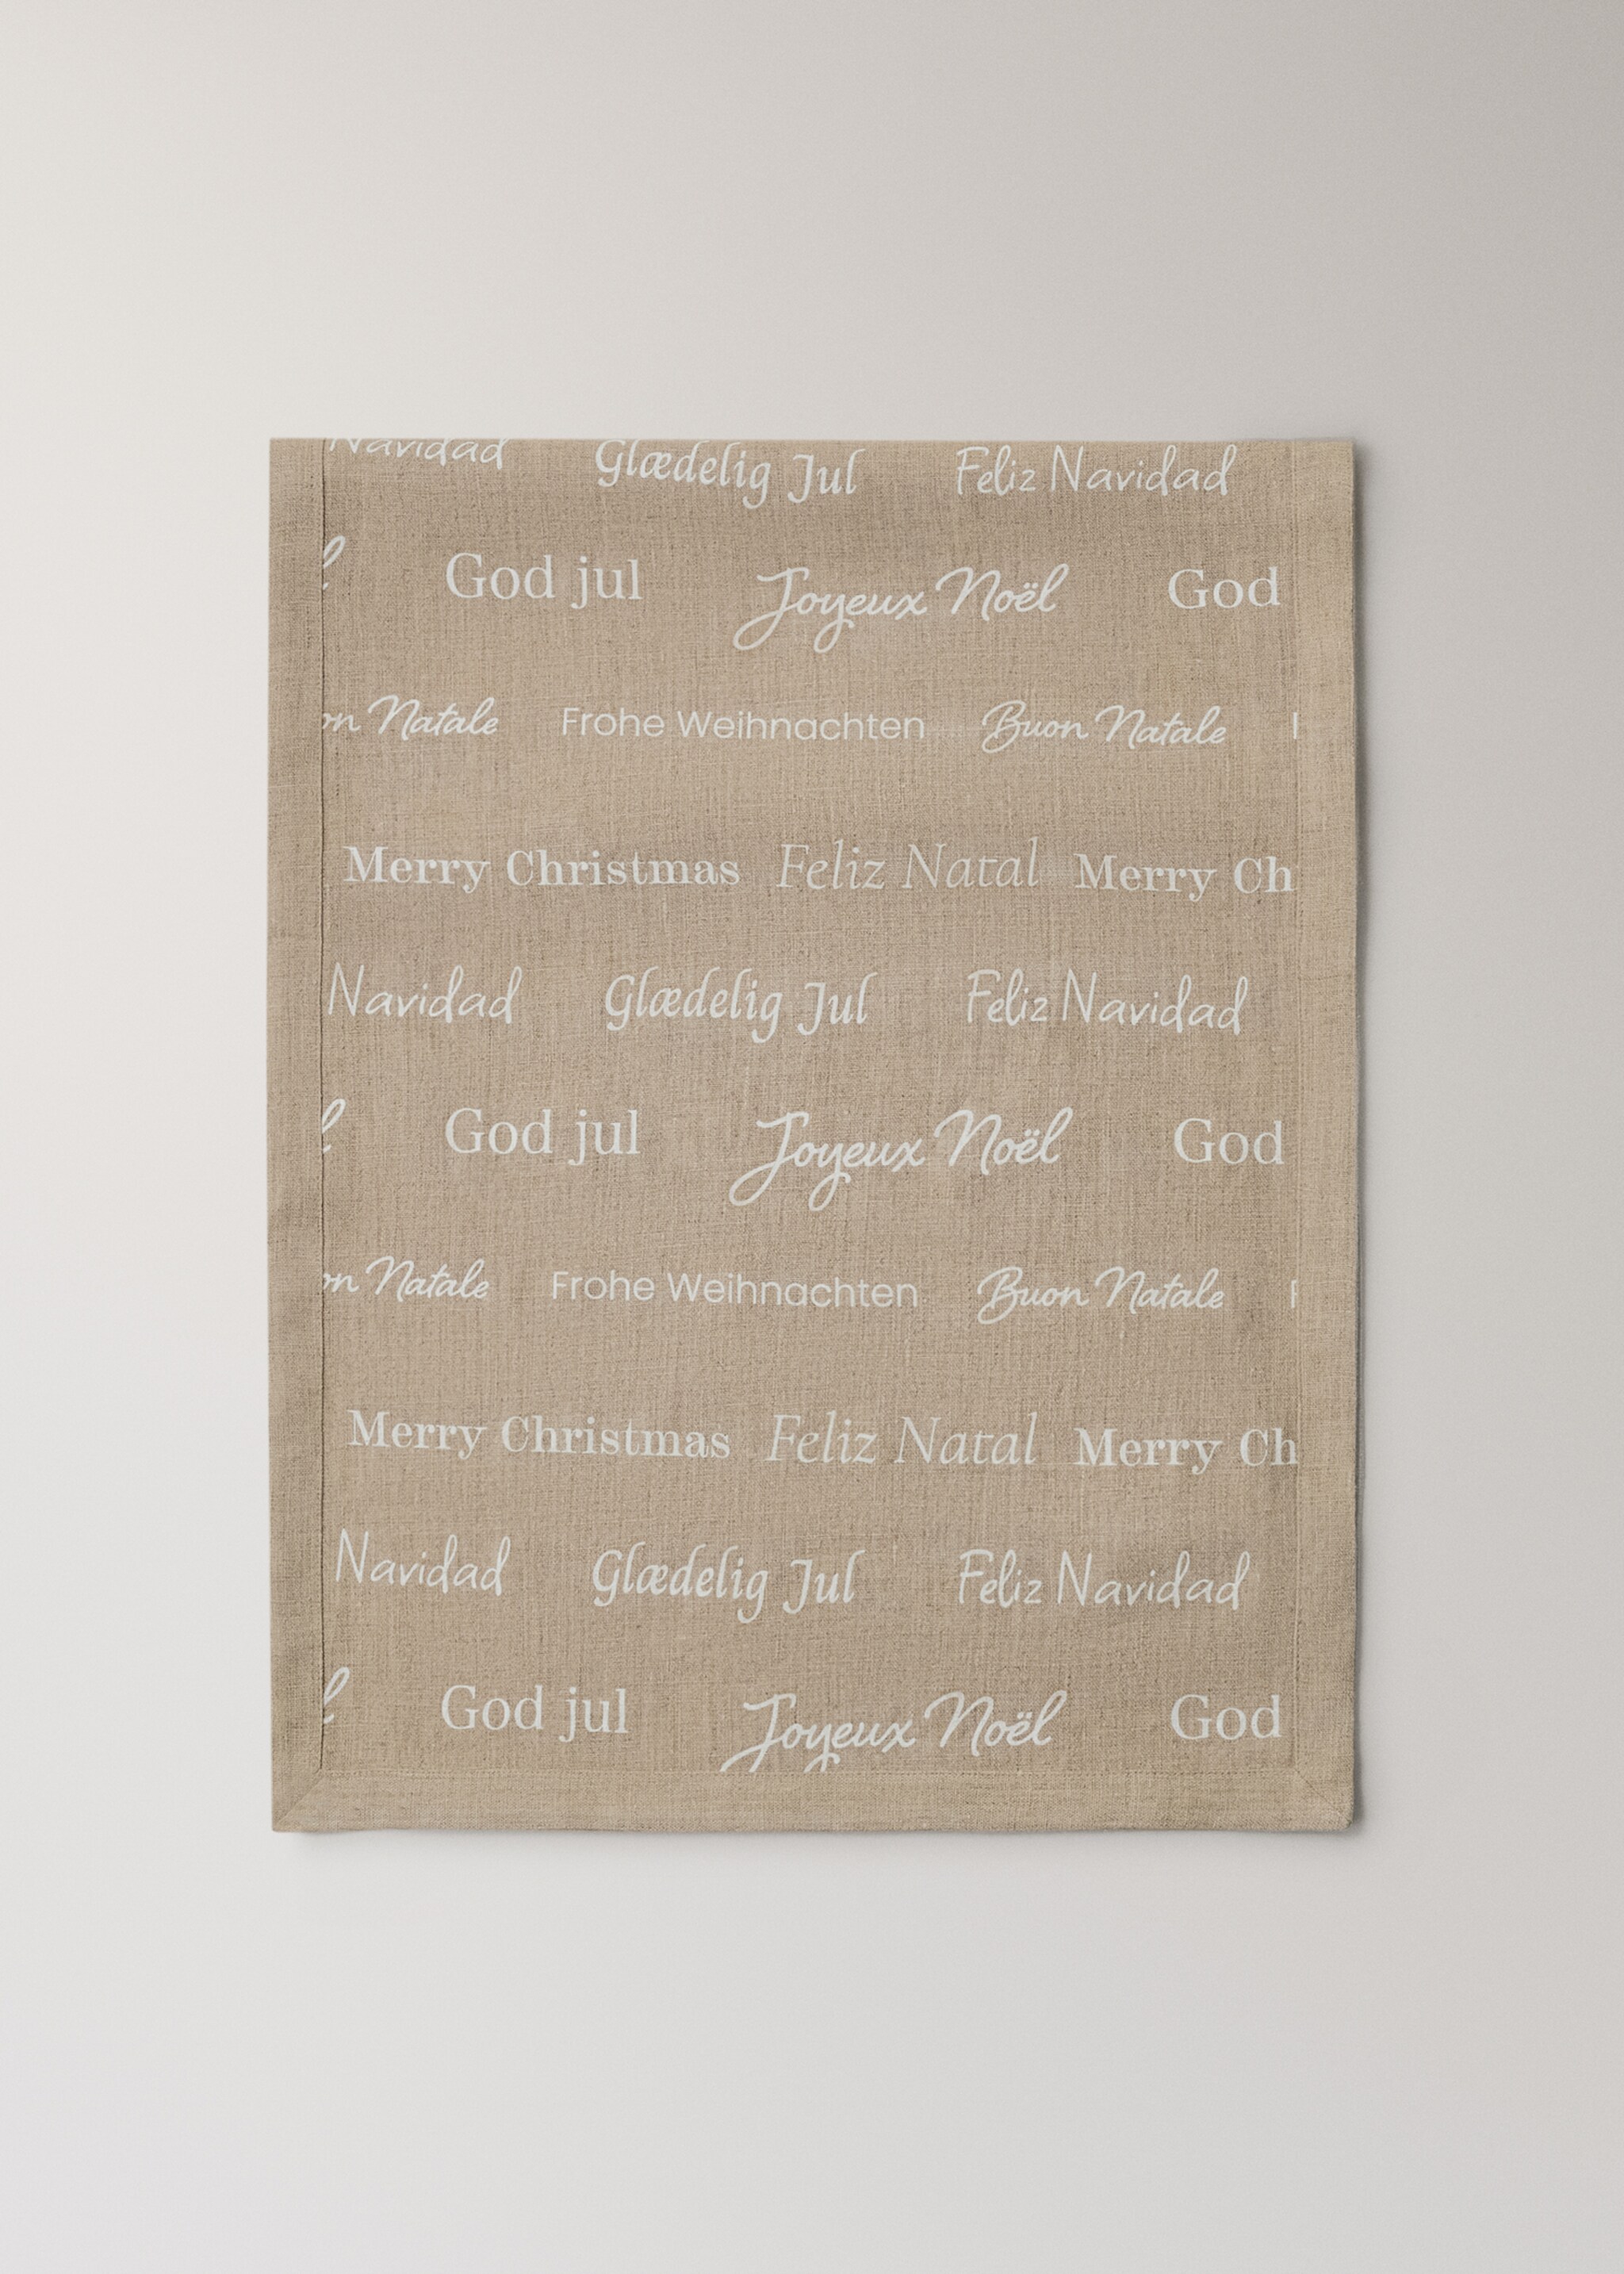 Navidad Glædelig Jul Feliz Navidad
l God jul Joyeux Noël God
on Natale Frohe Weihnachten Buon Natale
Merry Christmas Feliz Natal Merry Ch
Navidad Glædelig Jul Feliz Navidad
l God jul Joyeux Noël God
on Natale Frohe Weihnachten Buon Natale
Merry Christmas Feliz Natal Merry Ch
Navidad Glædelig Jul Feliz Navidad
l God jul Joyeux Noël God